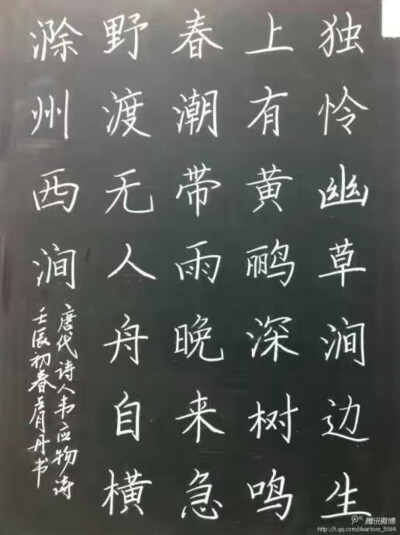 独怜幽草涧边生
上有黄鹂深树鸣
春潮带雨晚来急
野渡无人舟自横
滁州西涧
唐代诗人韦应物诗
壬辰初春丹书
腾讯微博
http://t.qq.com/dearlover_5094